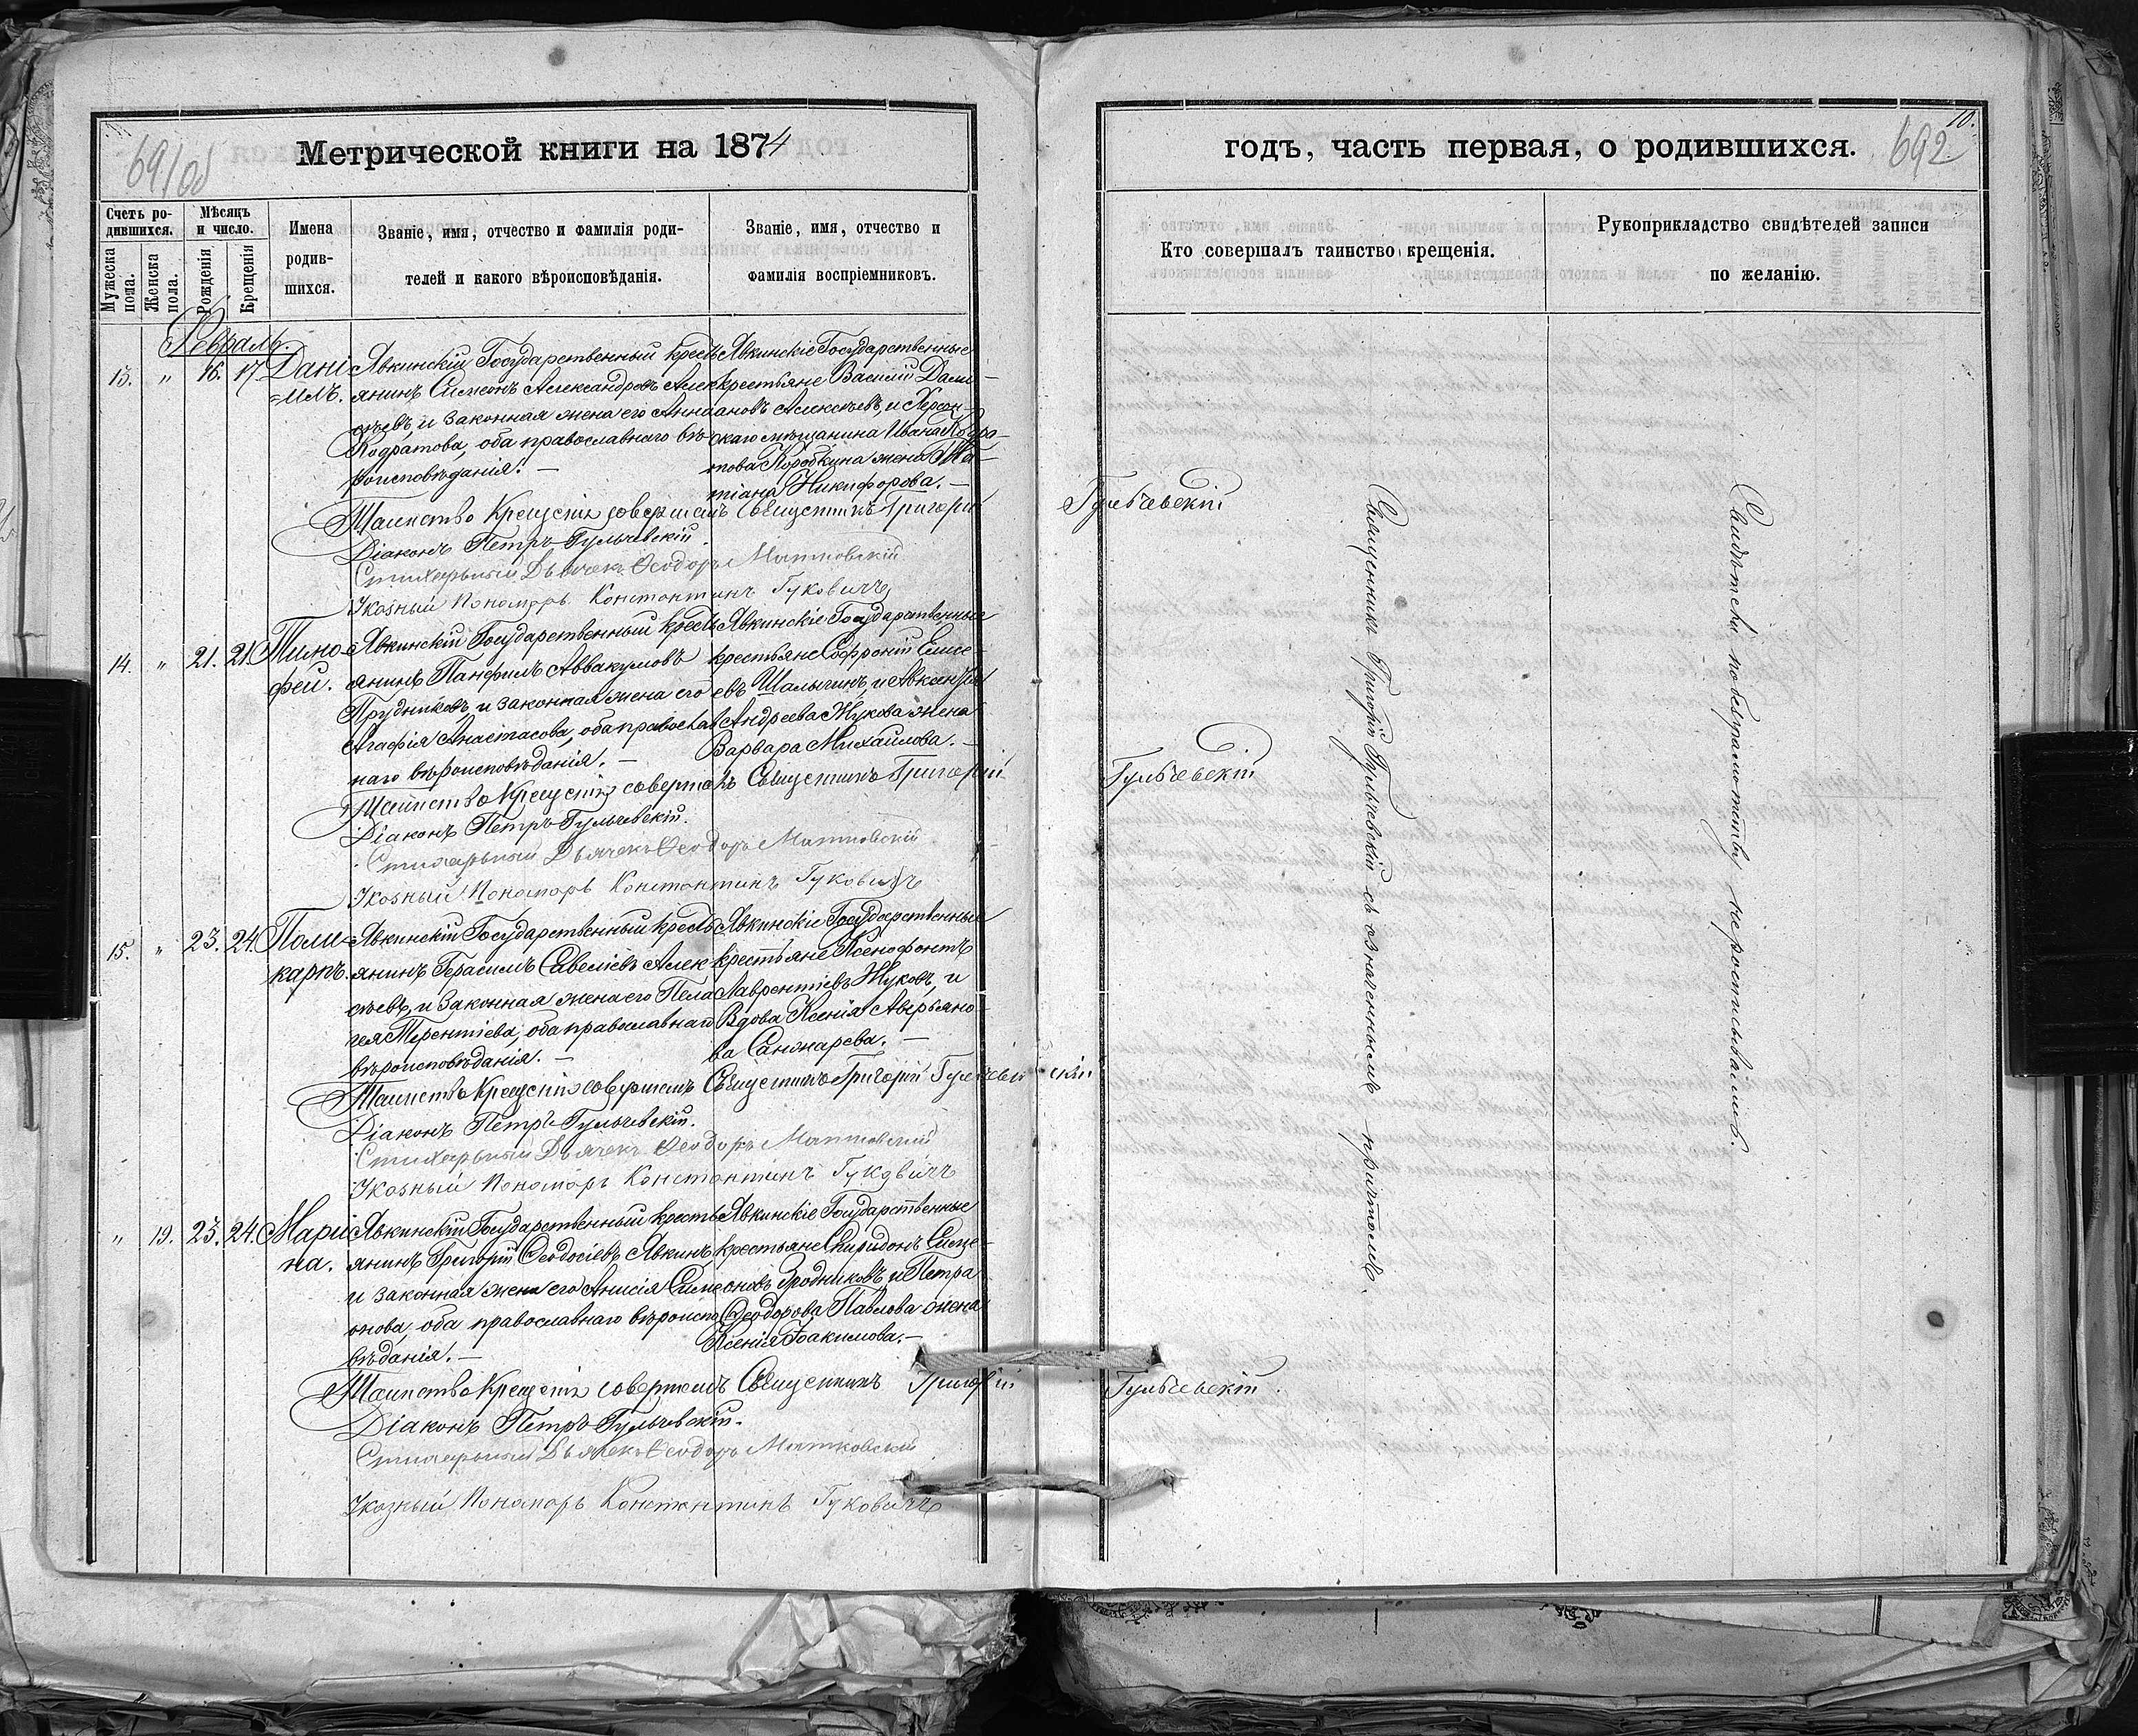 691об
Метрической книги на 1874
Счетъ ро-
дившихся.
Мужеска пола.
Женска пола.
Мѣсяцъ
и число.
Рожденія
Крещенія
Имена
родив-
шихся.
Званіе, имя, отчество и фамилія роди-
телей и какого вѣроисповѣданія.
Званіе, имя, отчество и
фамилія воспріемниковъ.
Февраль.
13. " 16. 17
Дані
=илъ.
Явкинскій Государственный кресть
янинъ Симеонъ Александровъ Алек
сѣевъ, и законная жена его Анна
Кодратова, оба православнаго вѣ
роисповѣданія. —
Явкинскіе Государственные
крестьяне Василій Дами-
ановъ Алексѣевъ, и Херсон-
скаго мѣщанина Ивана Кодра-
това Коробкина жена Та-
тіана Никифорова. —
Таинство Крещенія совершилъ Священникъ Григорій
Діаконъ Петръ Гульчевскій
Стихарный Дьячекъ Ѳеодоръ Матковскій
Указный Пономарь Константинъ Гуковичъ
14. " 21. 21.
Тимо-
фей.
Явкинскій Государственный кресть
янинъ Панфилъ Аввакумовъ
Прудниковъ, и законная жена его
Агафія Анастасова, оба православ
наго вѣроисповѣданія. —
Явкинскіе Государственные
крестьяне Софроній Елисе-
евъ Шалыгинъ, и Авксентія
Андреева Жукова жена
Варвара Михаилова. —
Таинство Крещенія совершилъ Священникъ Григорій
Діаконъ Петръ Гульчевскій.
Стихарный Дьячекъ Ѳеодоръ Матковскій
Указный Пономарь Константинъ Гуковичъ
15. " 23. 24.
Поли-
карпъ.
Явкинскій Государственный кресть
янинъ Герасимъ Савеліевъ Алек
сѣевъ, и законная жена его Пела
гея Терентіева, оба православнаго
вѣроисповѣданія. —
Явкинскіе Государственные
крестьяне Ксенофонтъ
Лаврентіевъ Жуковъ, и
Вдова Ксенія Аверьяно-
ва Санжарева. —
Таинство Крещенія совершилъ Священникъ Григорій Гульчевскій
Діаконъ Петръ Гульчевскій.
Стихарный Дьячекъ Ѳеодоръ Матковский
Указный Пономарь Константинъ Гуковичъ
" 19. 23. 24.
Мари
на.
Явкинскій Государственный кресть
янинъ Григорій Ѳеодосіевъ Явкинъ,
и законная жена его Анисія Симе
онова, оба православнаго вѣроиспо
вѣданія. —
Явкинскіе Государственные
крестьяне Спиридонъ Симе-
оновъ Бродниковъ, и Петра
Ѳеодорова Павлова жена
Ксенія Іоакимова. —
Таинство Крещенія совершилъ Священникъ Григорій
Діаконъ Петръ Гульчевскій.
Стихарный Дьячекъ Ѳеодоръ Матковский
Указный Пономарь Константинъ Гуковичъ
10.
692
годъ, часть первая, о родившихся.
Кто совершалъ таинство крещенія.
Рукоприкладство свидѣтелей записи
по желанію.
Гульчевскій
Гульчевскій
Гульчевскій
Священникъ Григорій Гульчевскій съ означеннымъ причтомъ.
Свидѣтели по безграмотству нерасписывались.